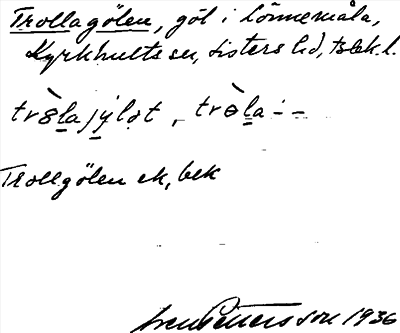 Trollagölen, göl i Lönnemåla,
Kyrkhults sn, Listers hd, Blek. l.
trὸlajylət, trὸla--
Trollgölen ek, bek
Sven Pettersson 1936